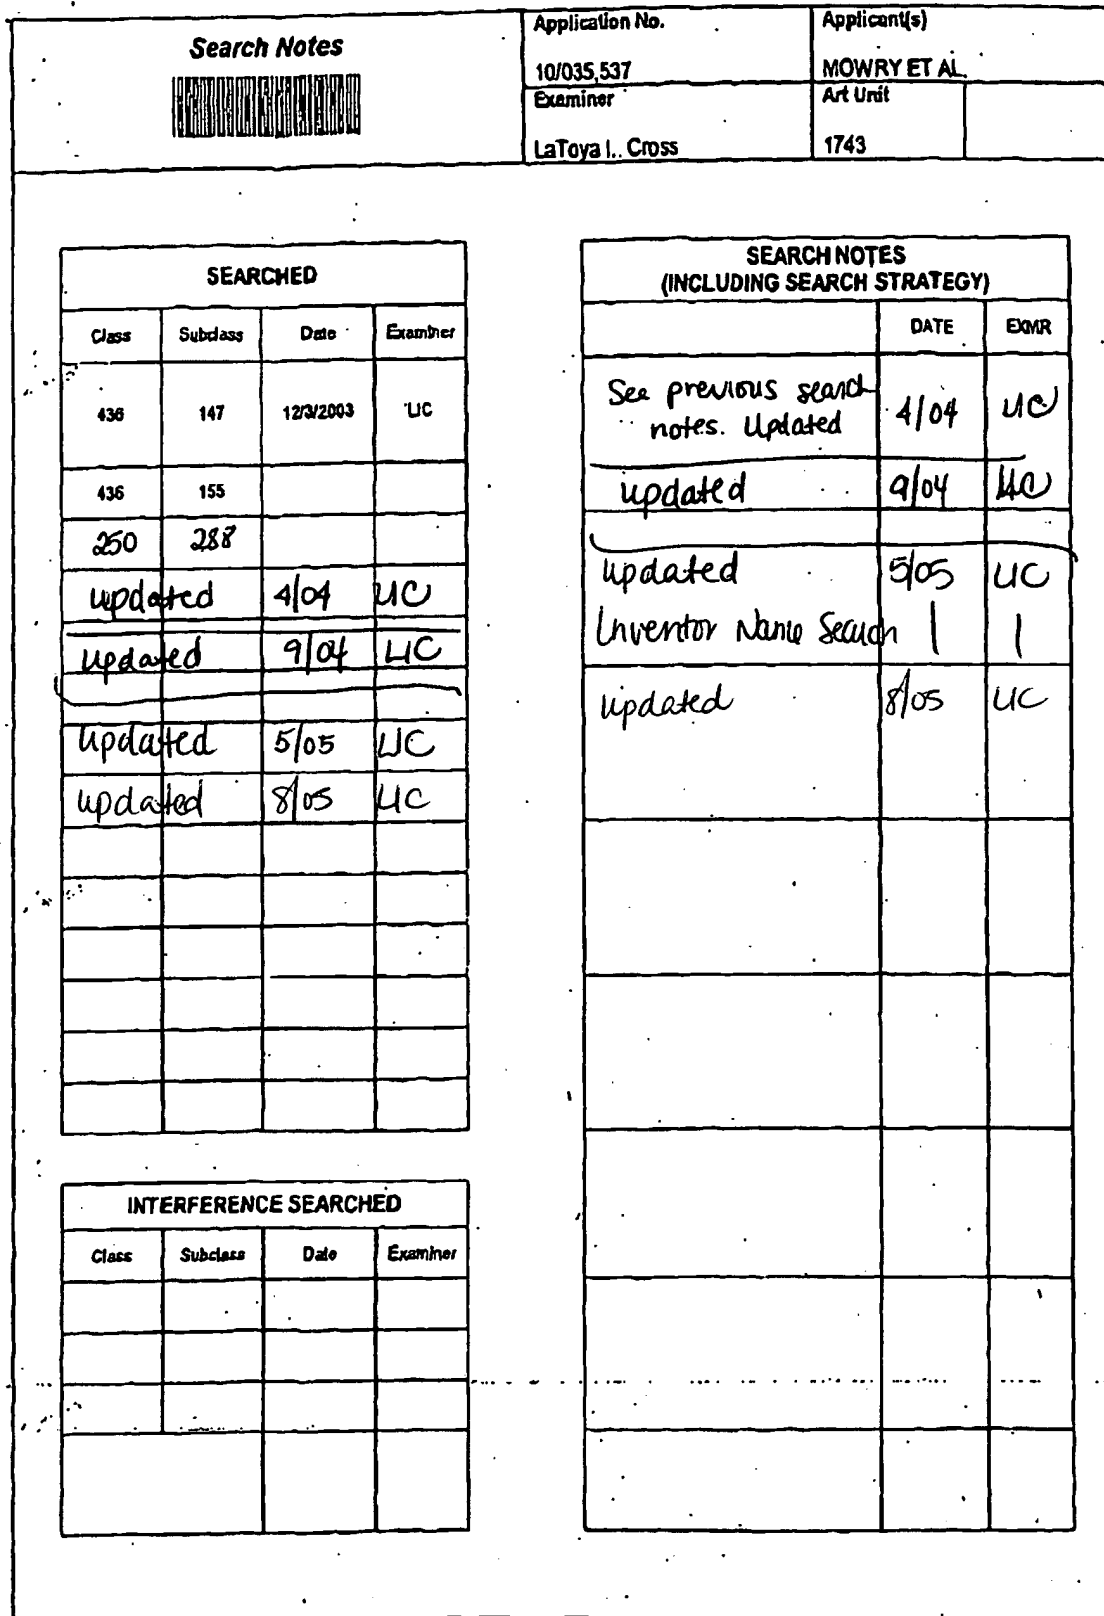 Search Notes
Application No.
Applicant(s)
10/035,537
MOWRY ET AL.
Examiner
Art Unit
LaToya I.. Cross
1743
SEARCHED
Class Subclass Date Examiner
436 147 12/3/2003 LIC
436 155
250 288
updated 4/04 LIC
updated 9/04 LIC
updated 5/05 LIC
updated 8/05 LIC
INTERFERENCE SEARCHED
Class Subclass Date Examiner
SEARCH NOTES
(INCLUDING SEARCH STRATEGY)
DATE EXMR
See previous search
notes. Updated 4/04 LIC
updated 9/04 LIC
updated 5/05 LIC
Inventor Name Search | |
updated 8/05 LIC